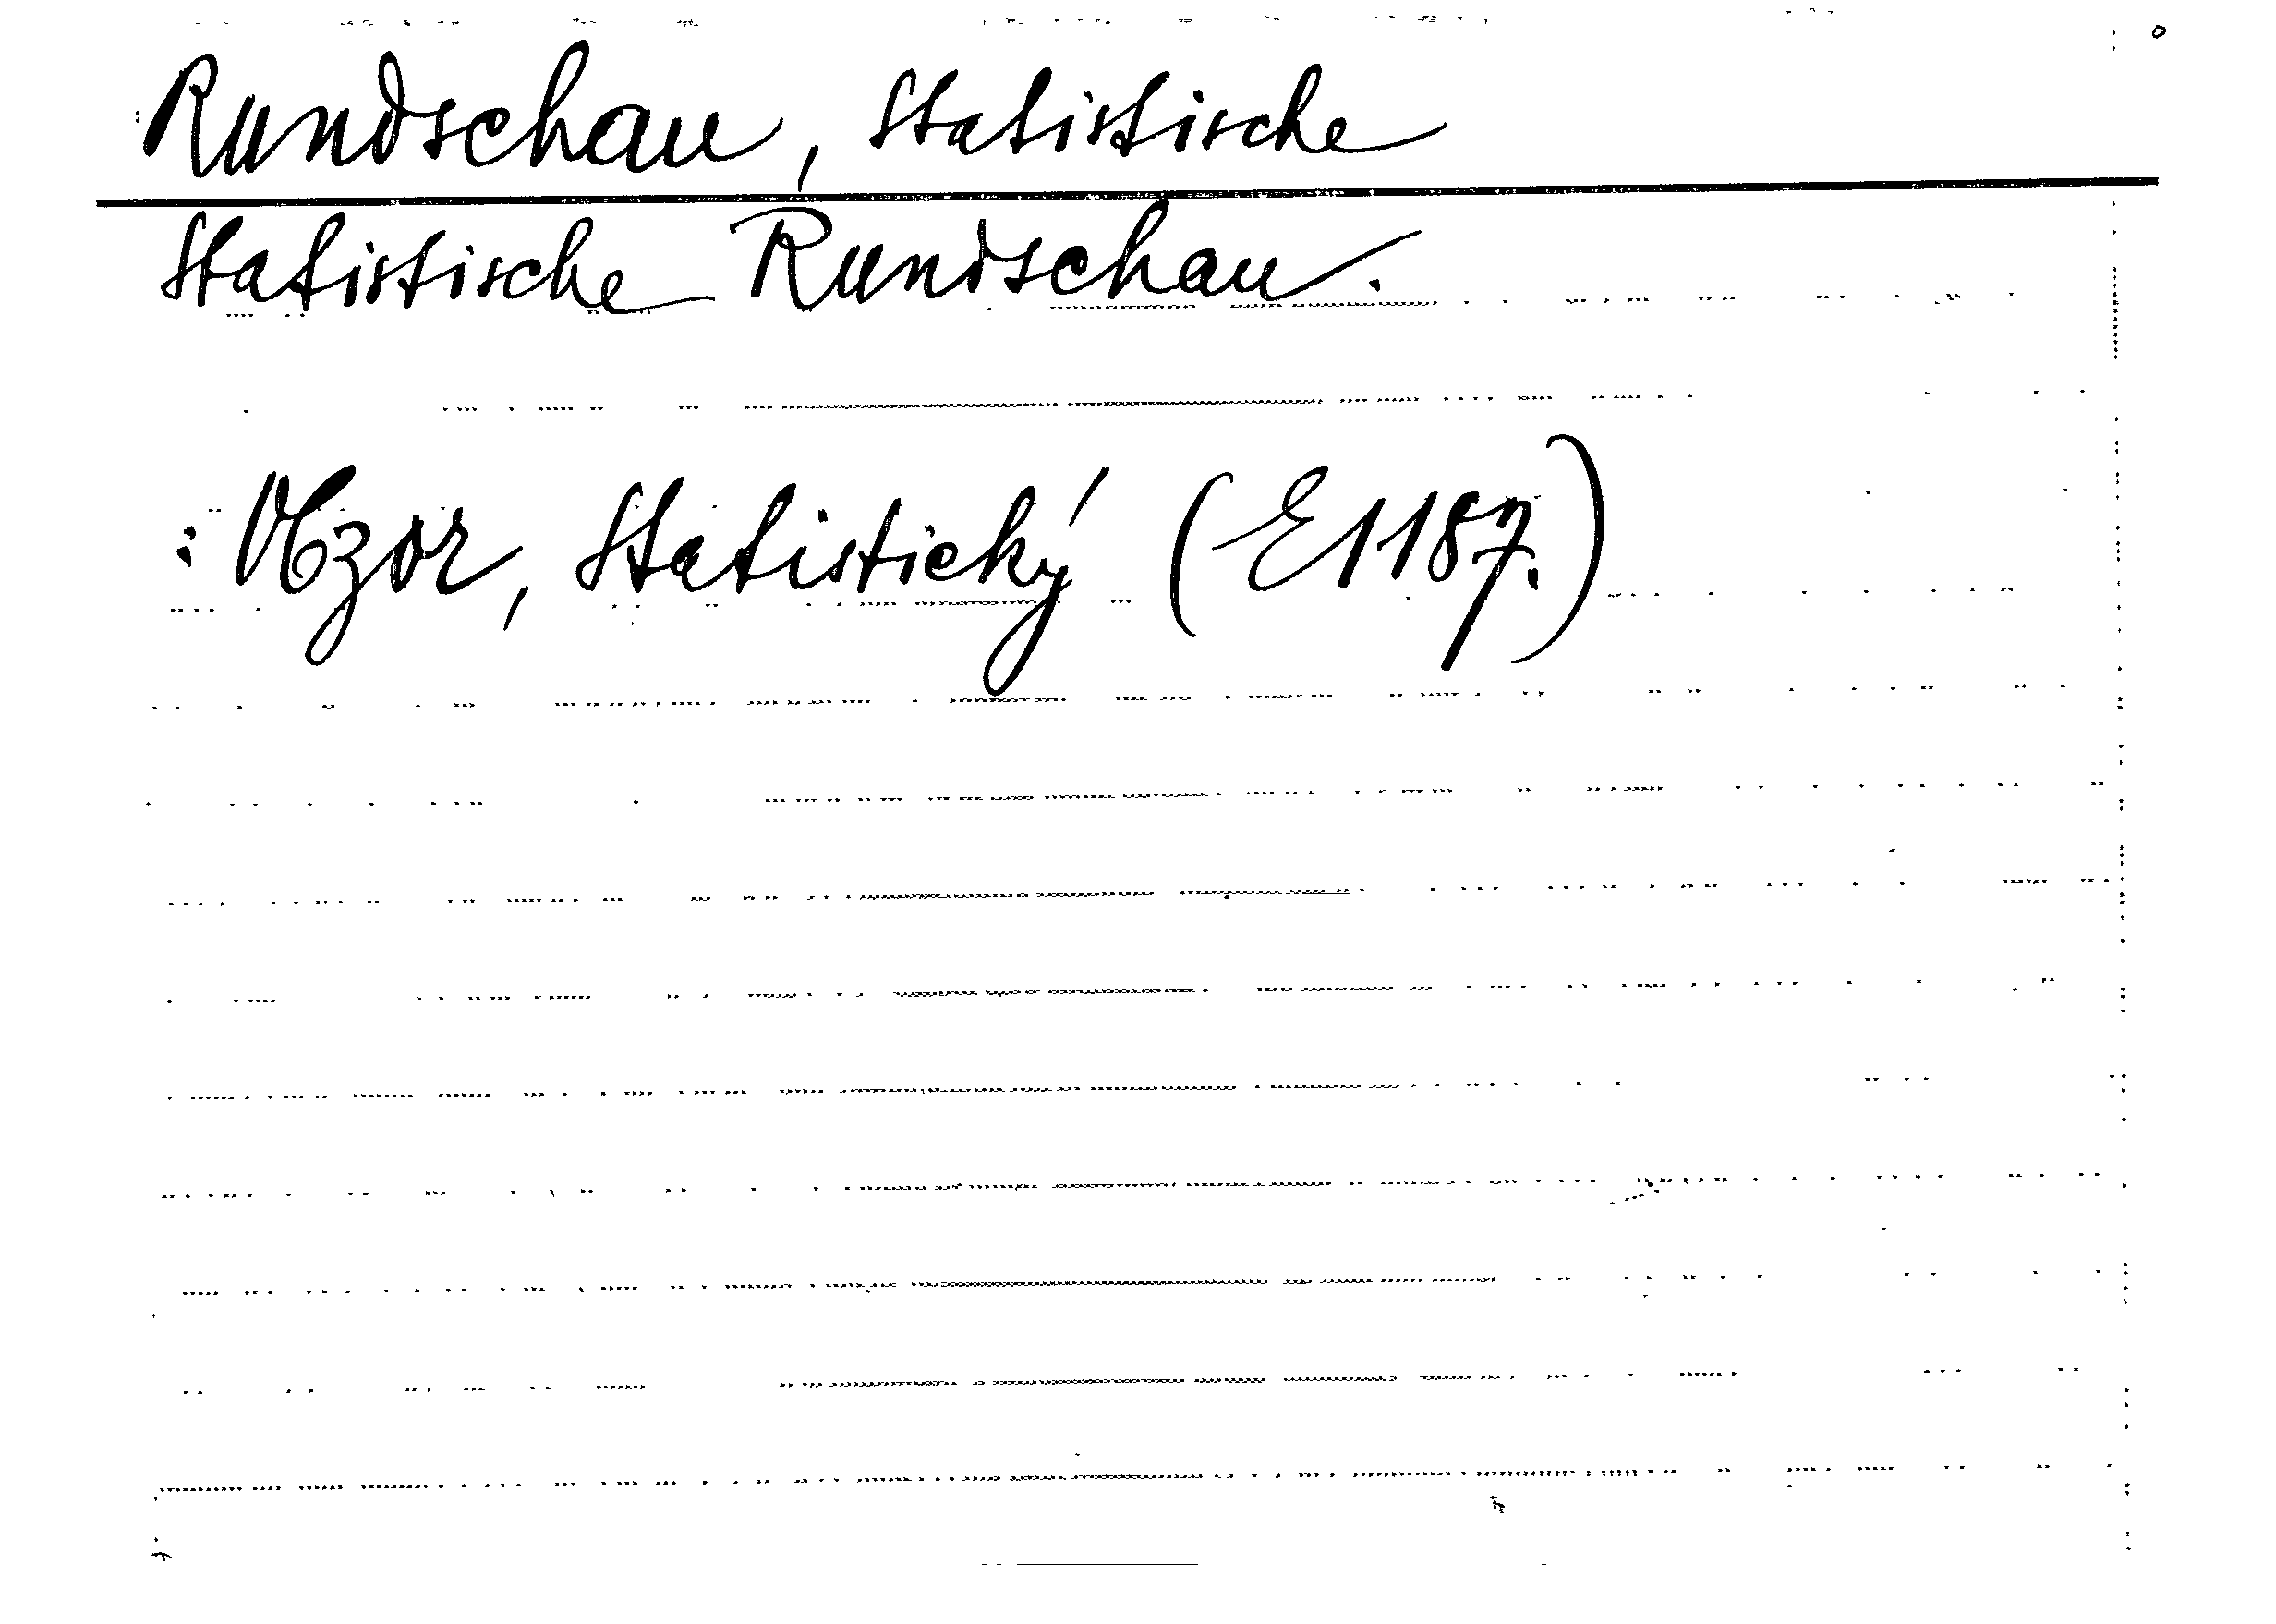 Rundschau, Statistische
Statistische Rundschau.
: Obzor, Statistický (E1187.)